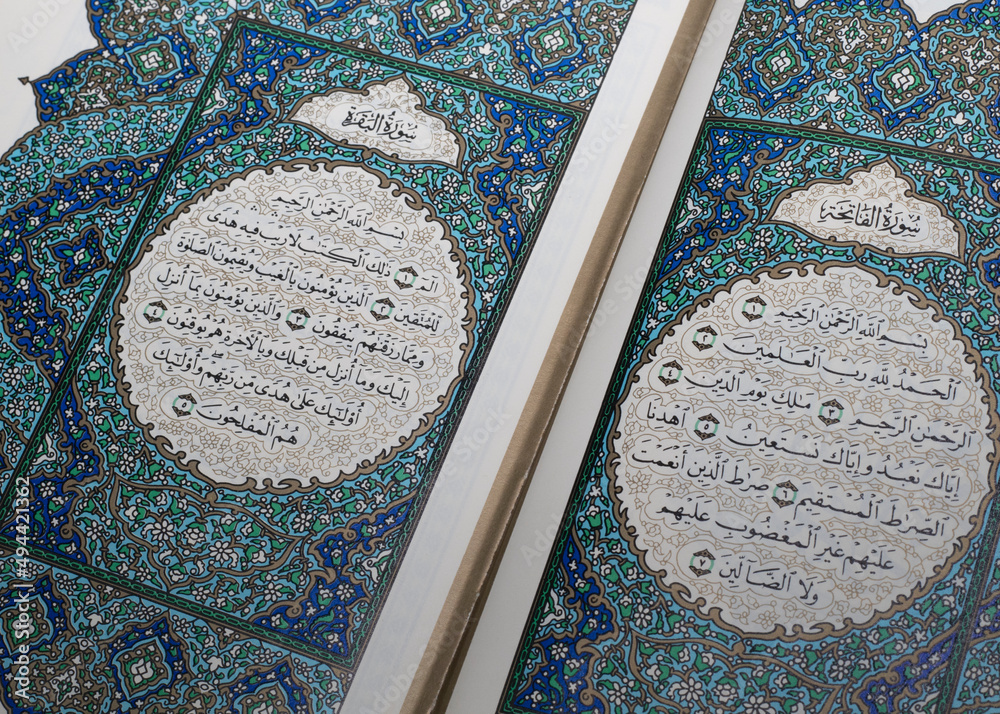 سُورَةُ الفَاتِحَة
بِسْمِ ٱللَّهِ ٱلرَّحْمَٰنِ ٱلرَّحِيمِ ١
ٱلْحَمْدُ لِلَّهِ رَبِّ ٱلْعَٰلَمِينَ ٢
ٱلرَّحْمَٰنِ ٱلرَّحِيمِ ٣ مَٰلِكِ يَوْمِ ٱلدِّينِ ٤
إِيَّاكَ نَعْبُدُ وَإِيَّاكَ نَسْتَعِينُ ٥ ٱهْدِنَا
ٱلصِّرَٰطَ ٱلْمُسْتَقِيمَ ٦ صِرَٰطَ ٱلَّذِينَ أَنْعَمْتَ
عَلَيْهِمْ غَيْرِ ٱلْمَغْضُوبِ عَلَيْهِمْ
وَلَا ٱلضَّآلِّينَ ٧
سُورَةُ البَقَرَة
بِسْمِ ٱللَّهِ ٱلرَّحْمَٰنِ ٱلرَّحِيمِ
الٓمٓ ١ ذَٰلِكَ ٱلْكِتَٰبُ لَا رَيْبَ فِيهِ هُدًى
لِّلْمُتَّقِينَ ٢ ٱلَّذِينَ يُؤْمِنُونَ بِٱلْغَيْبِ وَيُقِيمُونَ ٱلصَّلَوٰةَ
وَمِمَّا رَزَقْنَٰهُمْ يُنفِقُونَ ٣ وَٱلَّذِينَ يُؤْمِنُونَ بِمَآ أُنزِلَ
إِلَيْكَ وَمَآ أُنزِلَ مِن قَبْلِكَ وَبِٱلْءَاخِرَةِ هُمْ يُوقِنُونَ ٤
أُو۟لَٰٓئِكَ عَلَىٰ هُدًى مِّن رَّبِّهِمْ وَأُو۟لَٰٓئِكَ
هُمُ ٱلْمُفْلِحُونَ ٥
Adobe Stock | #494421362